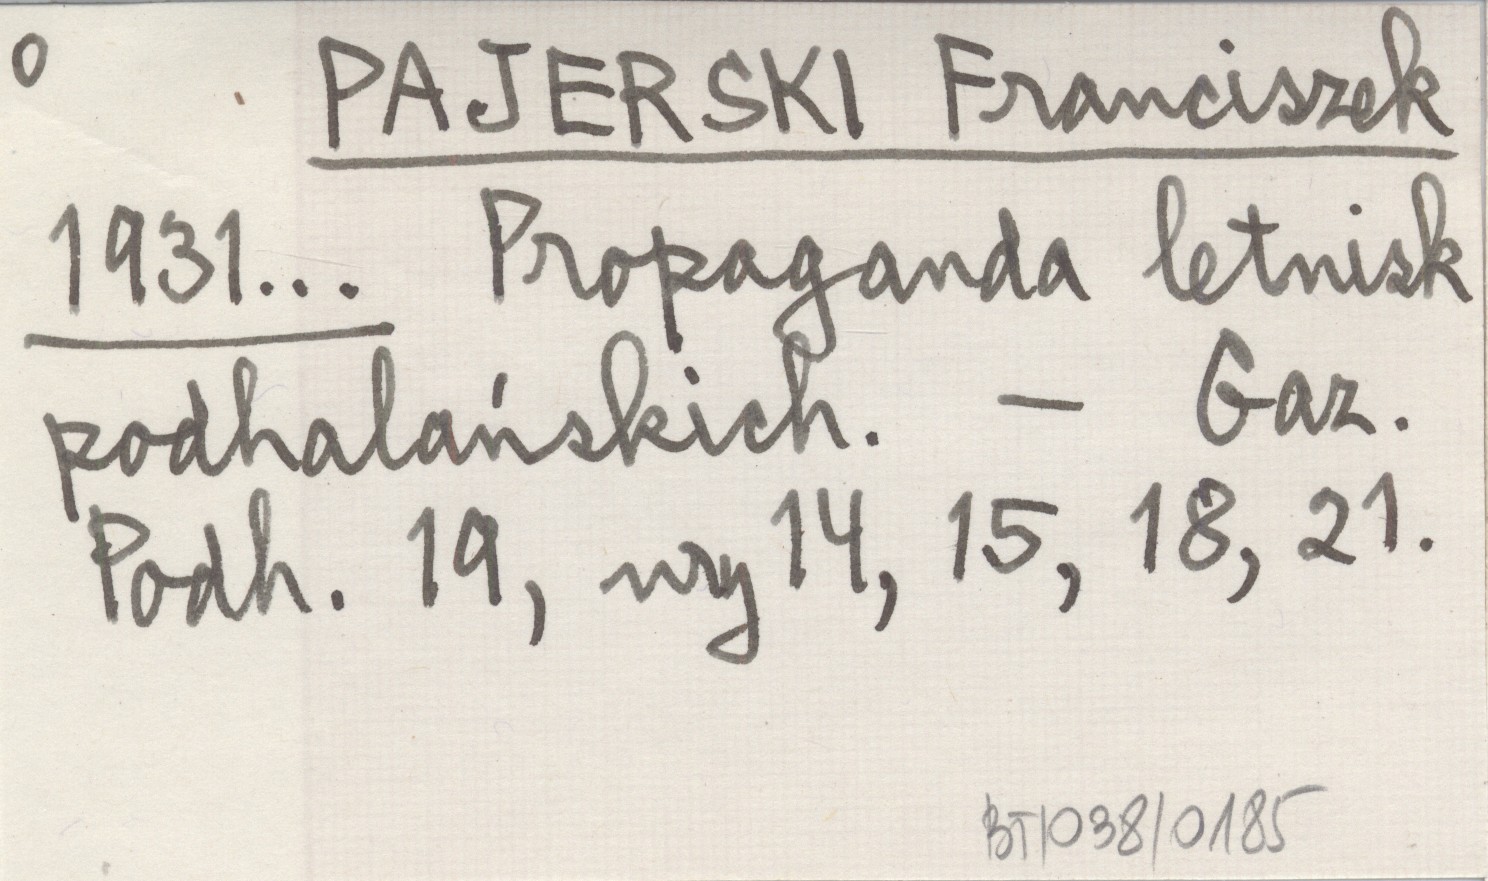 o PAJERSKI Franciszek
1931... Propaganda letnisk
podhalańskich. — Gaz.
Podh. 19, nry 14, 15, 18, 21.
BT/038/0185